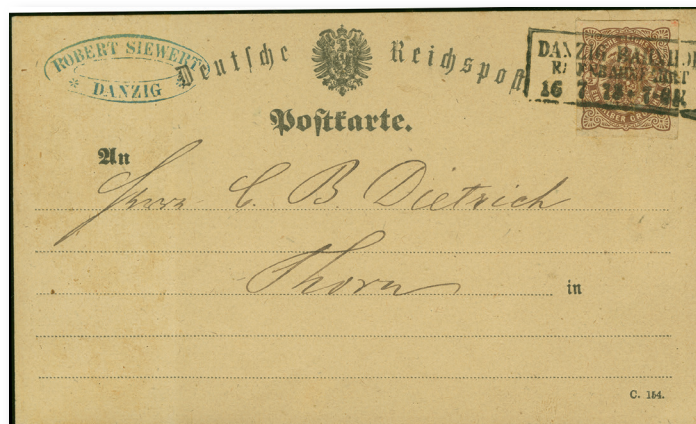 ROBERT SIEWERT
DANZIG
Deutsche Reichspost
DANZIG BAHNHOF
16 7 74 7-8N
HALBER GRO
Postkarte.
An
Herrn C. B. Dietrich
Thorn
in
C. 154.